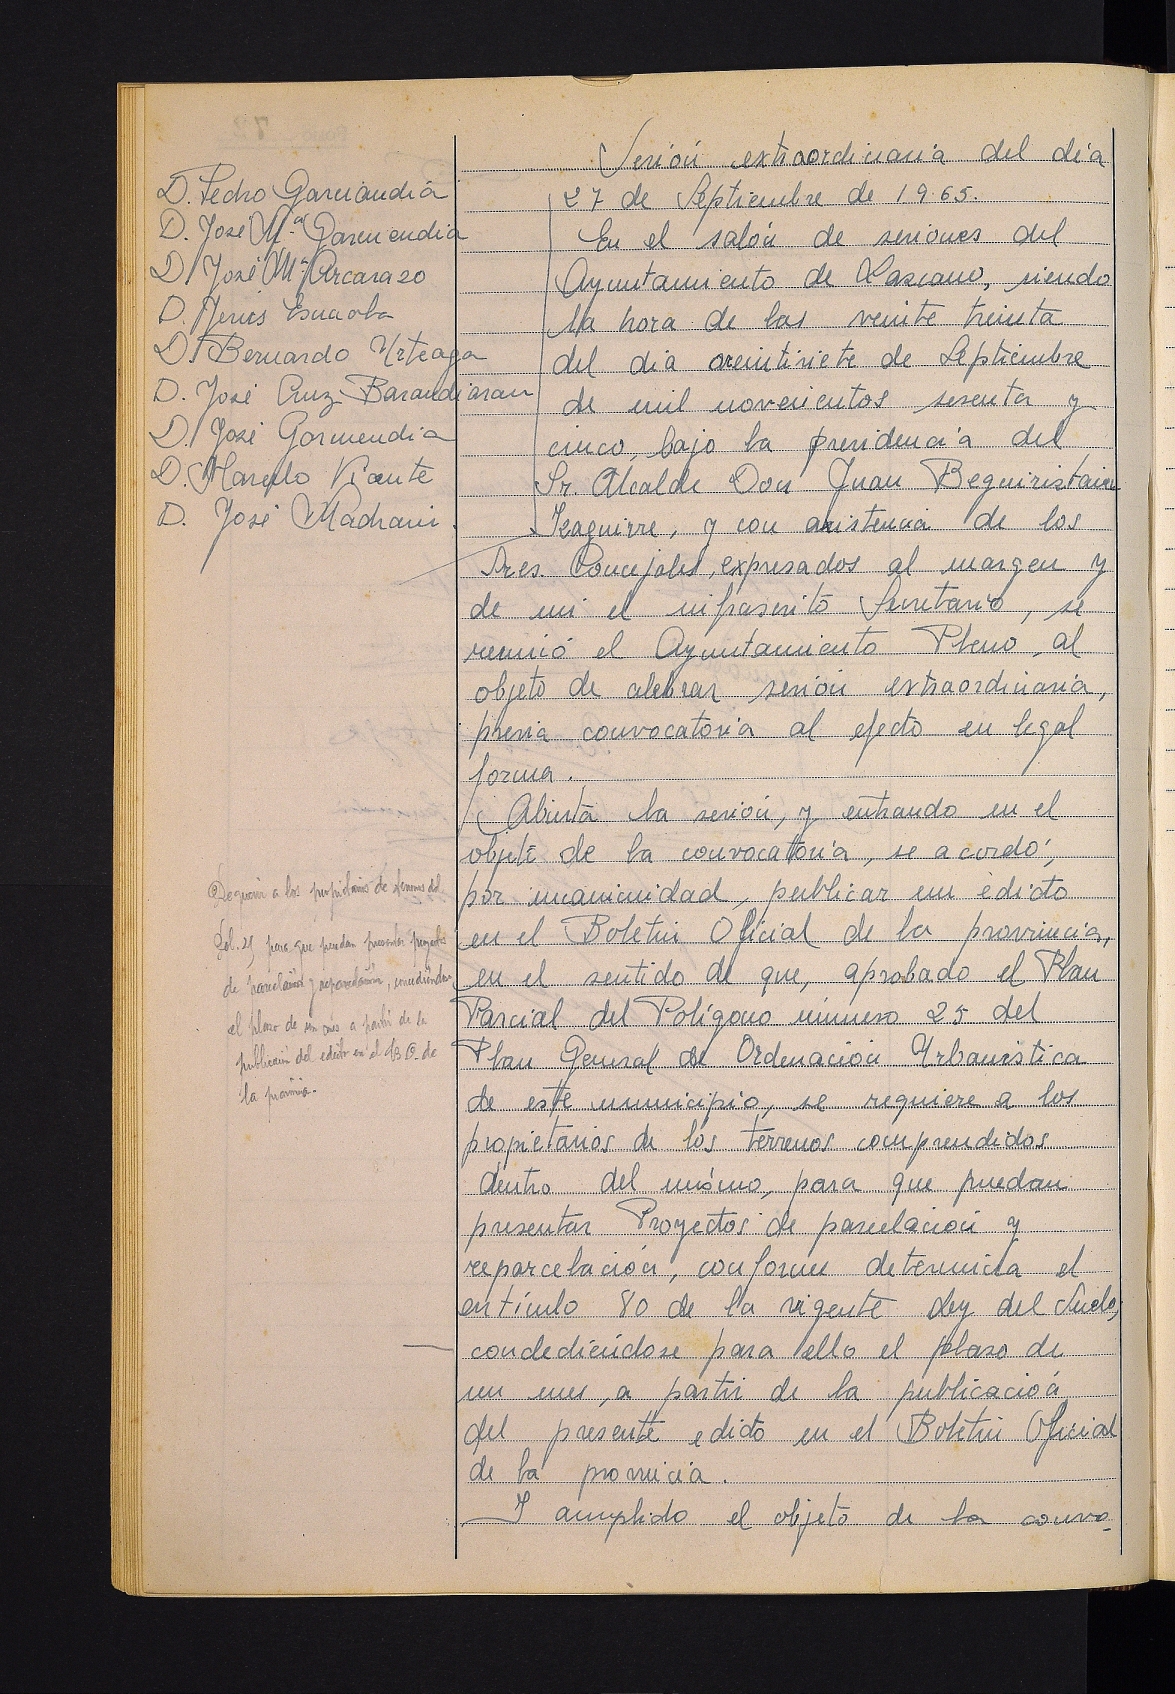 D. Pedro Garciandia
D. José Mª Garmendia
D. José Mª Arcarazo
D. Jesús Esnaola
D. Bernardo Urteaga
D. José Cruz Barandiaran
D. José Garmendia
D. Marcelo Vicente
D. José Madrani.
Sesión extraordinaria del dia
27 de Septiembre de 1965.
En el salón de sesiones del
Ayuntamiento de Lazcano, siendo
la hora de las veinte treinta
del dia veintisiete de Septiembre
de mil novecientos sesenta y
cinco, bajo la presidencia del
Sr. Alcalde Don Juan Beguiristain
Izaguirre, y con asistencia de los
Sres. Concejales, expresados al margen y
de mi el infrascrito Secretario, se
reunió el Ayuntamiento Pleno, al
objeto de celebrar sesión extraordinaria,
previa convocatoria al efecto en legal
forma.
Abierta la sesión, y entrando en el
objeto de la convocatoria, se acordó,
por unanimidad, publicar un edicto
en el Boletin Oficial de la provincia,
en el sentido de que, aprobado el Plan
Parcial del Polígono número 25 del
Plan General de Ordenación Urbanística
de este municipio, se requiere a los
propietarios de los terrenos comprendidos
dentro del mismo, para que puedan
presentar Proyectos de parcelación y
reparcelación, conforme determina el
artículo 80 de la vigente Ley del Suelo,
condediéndose para ello el plazo de
un mes, a partir de la publicación
del presente edicto en el Boletin Oficial
de la provincia.
Y cumplido el objeto de la convo-
Requerir a los propietarios de terrenos del
Pol. 25 para que puedan presentar proyectos
de parcelación y reparcelación, concediéndose
el plazo de un mes a partir de la
publicación del edicto en el B.O. de
la provincia.